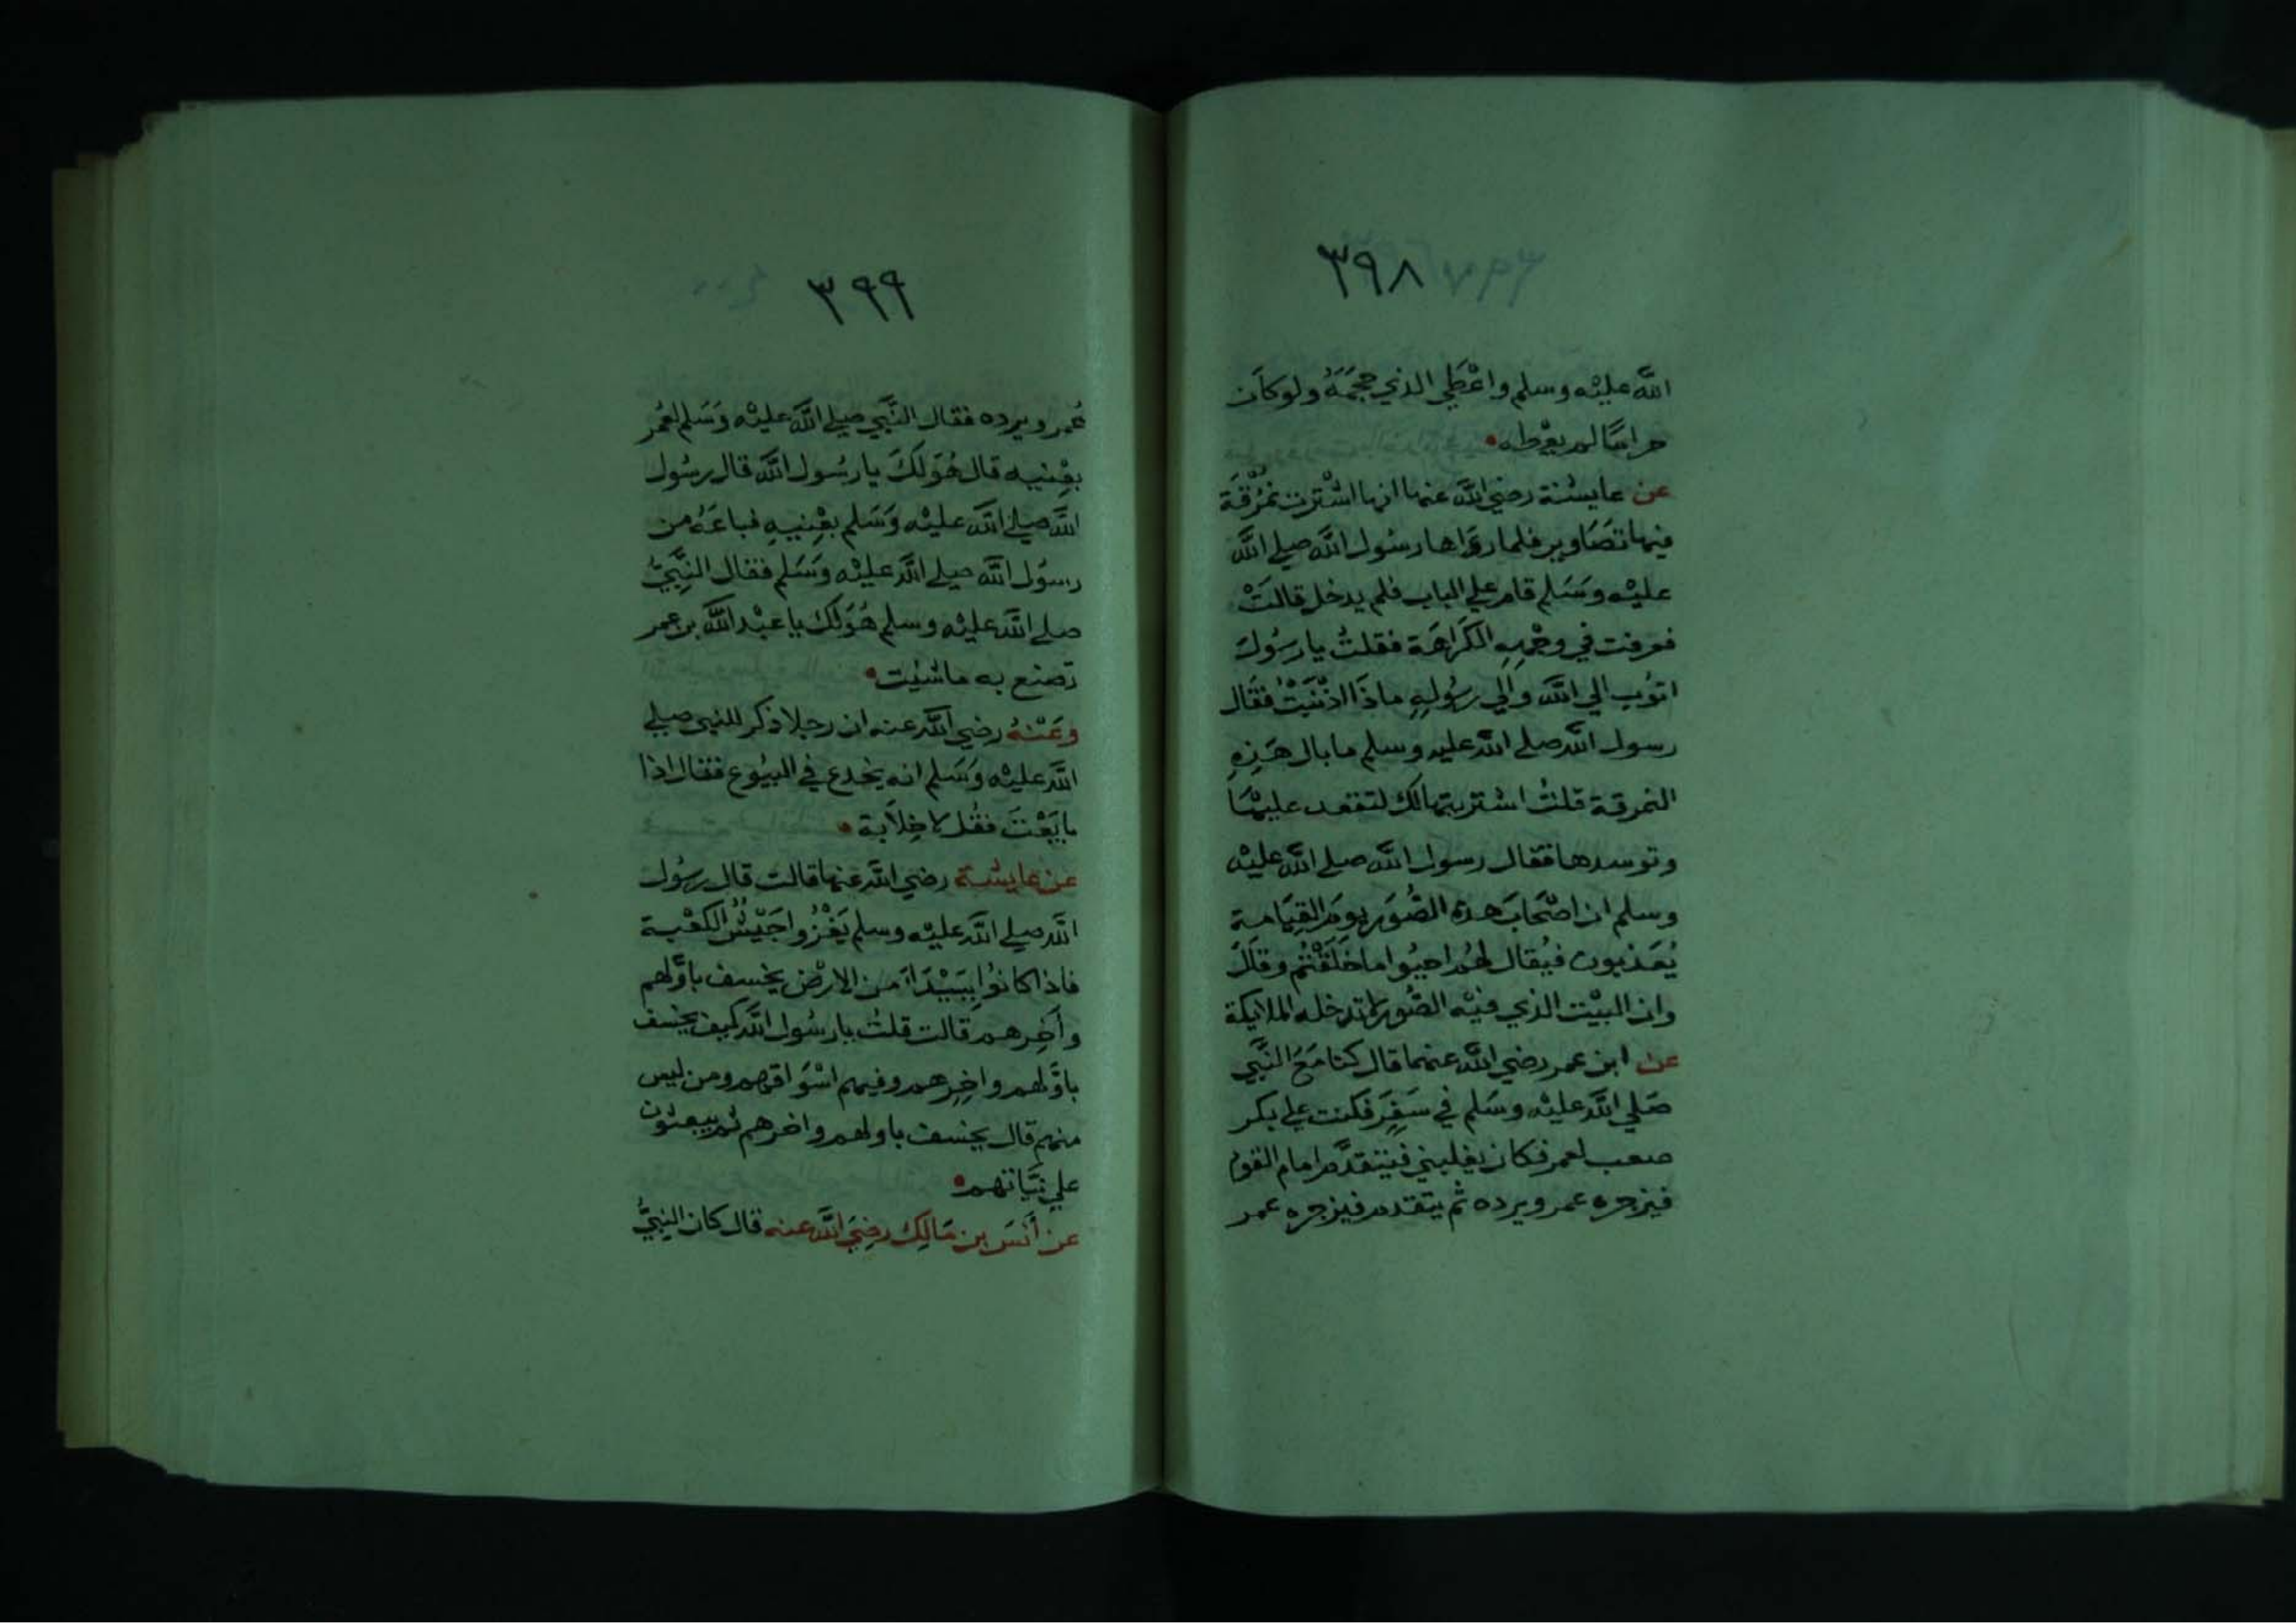 ٣٩٨
الله عليْه وسلم واعْطي الذي حجَمَهُ ولو كان
حرامًا لم يعْطه
عن عايشة رضي الله عنها انها اشْترت نمُرُقَة
فيها تصَاوير فلما رءاها رسُول الله صلي الله
عليْه وسَلم قام علي الباب فلم يدخل قالتْ
فعرفت في وجْهِهِ الكَراهَة فقلتُ يا رسُول
اتوُب الي الله والي رسُولِهِ ماذَا اذْنَبْتُ فقَال
رسول الله صلي الله عليه وسلم ما بال هَذِهِ
النمرقة قلتُ اشتريتها لك لتقعد عليهَا
وتوسدها فقال رسول الله صلي الله عليْه
وسلم ان اصْحَابَ هذه الصُّوَر يومَ القِيَامة
يُعَذبون فيُقال لهُم احيُوا ما خلَقْتُم وقال
وان البيْت الذي فيْه الصُّور لا تدخله الملايكة
عن ابن عمر رضي الله عنهما قال كنا مَعَ النَّبي
صَلي الله عليْه وسَلم في سَفَرٍ فكنت علي بكر
صعب لعمر فكان يغلبني فيتقدَّم امام القوم
فيزجره عمر ويرده ثم يتقدم فيزجره عمر
٣٩٩
عُمر ويرده فقال النَّبي صلي الله عليْه وَسَلم لعُمر
بعْنِيه قال هُوَ لكَ يا رسُول الله قال رسُول
الله صلي الله عليْه وَسَلم بعْنِيهِ فباعَهُ من
رسوُل الله صلي الله عليْه وَسَلم فقال النَّبيُّ
صلي الله عليْه وسلم هُوَ لكَ يا عبْد الله بن عمر
تصْنع به ما شيْت
وعَنْهُ رضي الله عنه ان رجلا ذكر للنبي صلي
الله عليْه وَسَلم انه يخْدع في البيُوع فقال اذا
بايَعْتَ فقُل لا خِلابة
عن عايشة رضي الله عنها قالت قال رسُول
الله صلي الله عليْه وسلم يَغْزُوا جَيْشٌ الكعْبة
فاذا كانوُا ببَيْدَاءَ من الارْض يخسف باوَّلهم
وآخِرهم قالت قلتُ يا رسُول الله كيف يخسف
باوَّلهم واخِرهم وفيهم اسْوَاقهم ومن ليس
منهم قال يخسف باولهم واخرهم ثم يبعثون
علي نيَّاتهم
عن أنَس بن مَالِك رضِيَ الله عنه قال كان النَّبيُّ